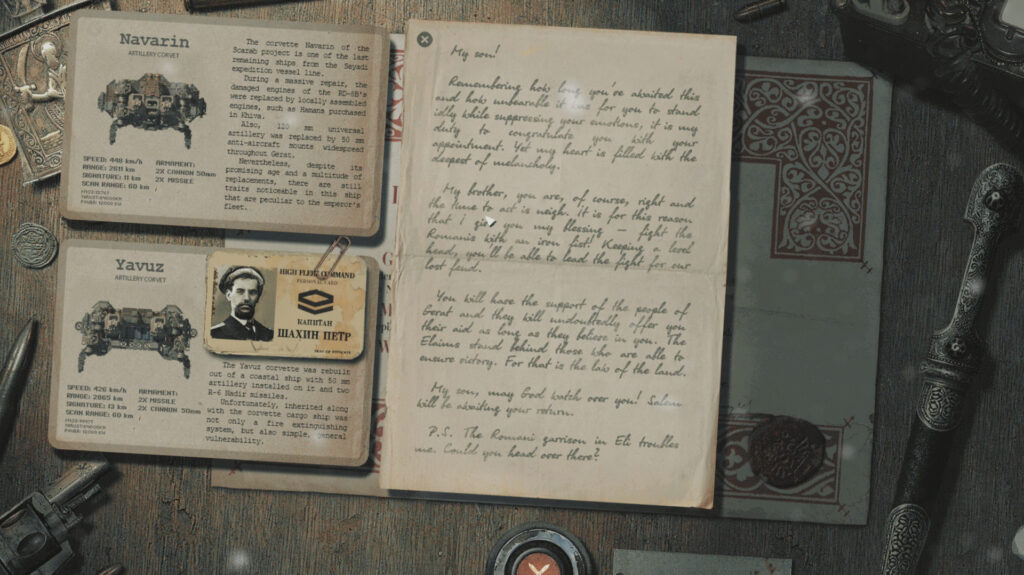 Navarin
ARTILLERY CORVET
The corvette Navarin of the
Scarab project is one of the last
remaining ships from the Seyadi
expedition vessel line.
During a massive repair, the
damaged engines of the RD-58's
were replaced by locally assembled
engines, such as Hamans purchased
in Khiva.
Also, 120 mm universal
artillery was replaced by 50 mm
anti-aircraft mounts widespread
throughout Gerat.
Nevertheless, despite its
promising age and a multitude of
replacements, there are still
traits noticeable in this ship
that are peculiar to the emperor's
fleet.
SPEED: 448 km/h
RANGE: 2611 km
SIGNATURE: 11 km
SCAN RANGE: 60 km
ARMAMENT:
2X CANNON 50mm
2X MISSILE
Yavuz
ARTILLERY CORVET
HIGH FLEET COMMAND
КАПИТАН
ШАХИН ПЕТР
SPEED: 426 km/h
RANGE: 2865 km
SIGNATURE: 13 km
SCAN RANGE: 60 km
ARMAMENT:
2X MISSILE
2X CANNON 50mm
The Yavuz corvette was rebuilt
out of a coastal ship with 50 mm
artillery installed on it and two
A-6 Nadir missiles.
Unfortunately, inherited along
with the corvette cargo ship was
not only a fire extinguishing
system, but also simple, general
vulnerability.
My son!
Remembering how long you've awaited this
and how unbearable it was for you to stand
idly while suppressing your emotions, it is my
duty to congratulate you with your
appointment. Yet my heart is filled with the
deepest of melancholy.
My brother, you are, of course, right and
the time to act is neigh. It is for this reason
that I give you my blessing – fight the
Romanis with an iron fist! Keeping a level
head, you'll be able to lead the fight for our
lost land.
You will have the support of the people of
Gerat and they will undoubtedly offer you
their aid as long as they believe in you. The
Elaims stand behind those who are able to
ensure victory. For that is the law of the land.
My son, may God watch over you! Salem
will be awaiting your return.
P.S. The Romani garrison in Eli troubles
me. Could you head over there?